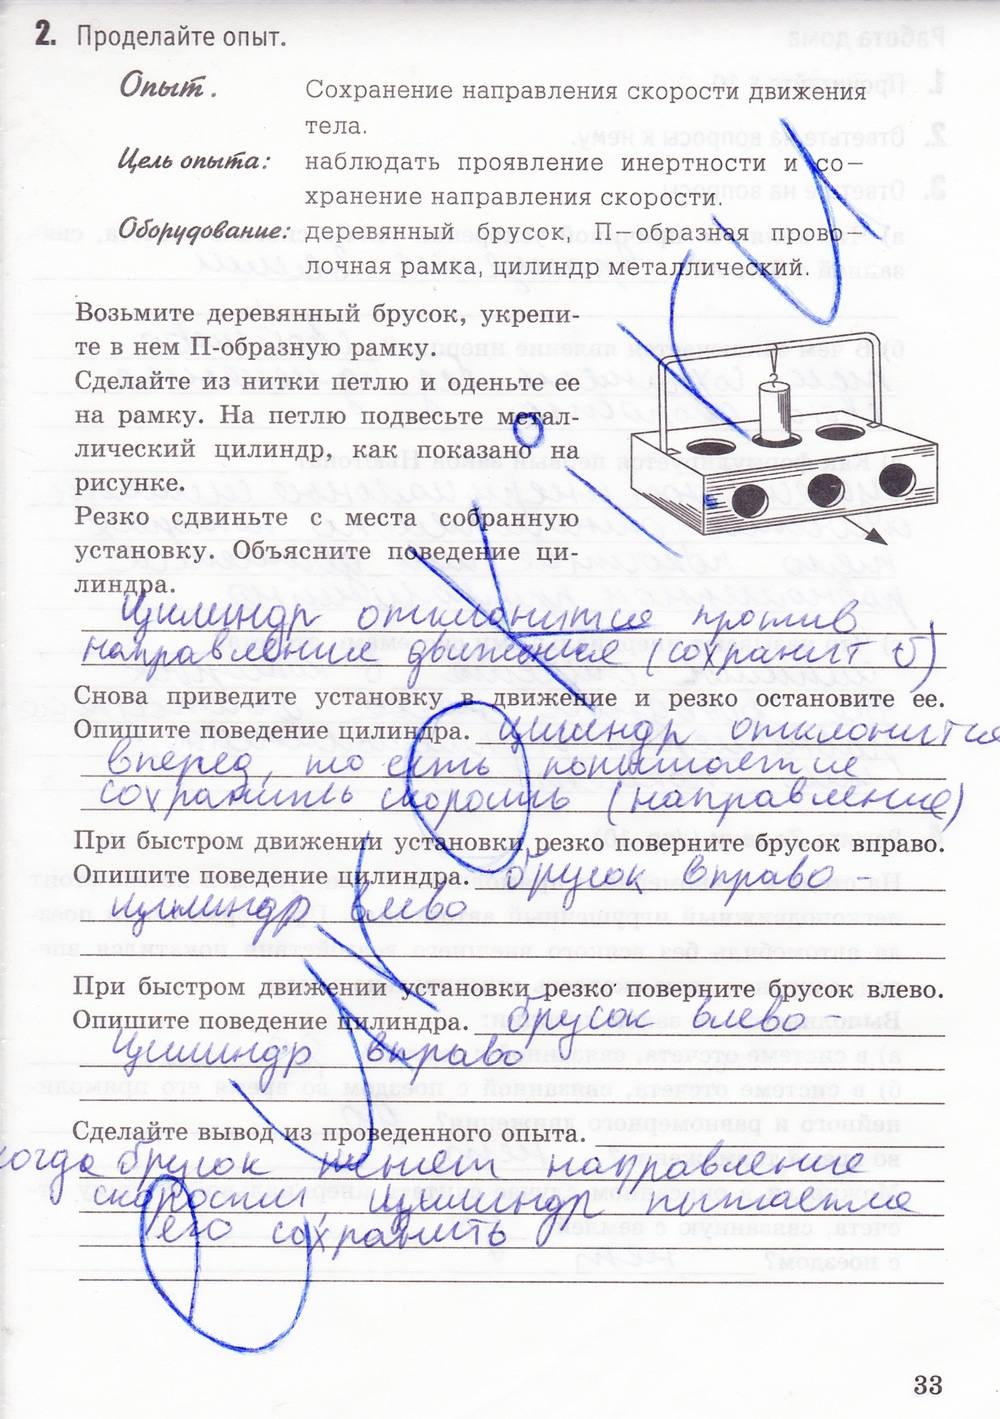 2. Проделайте опыт.
Опыт. Сохранение направления скорости движения
тела.
Цель опыта: наблюдать проявление инертности и со-
хранение направления скорости.
Оборудование: деревянный брусок, П-образная прово-
лочная рамка, цилиндр металлический.
Возьмите деревянный брусок, укрепи-
те в нем П-образную рамку.
Сделайте из нитки петлю и оденьте ее
на рамку. На петлю подвесьте метал-
лический цилиндр, как показано на
рисунке.
Резко сдвиньте с места собранную
установку. Объясните поведение ци-
линдра.
Цилиндр отклонится против
направление движения (сохранит υ)
Снова приведите установку в движение и резко остановите ее.
Опишите поведение цилиндра. Цилиндр отклонится
вперед, то есть попытается
сохранить скорость (направление)
При быстром движении установки резко поверните брусок вправо.
Опишите поведение цилиндра. брусок вправо -
цилиндр влево
При быстром движении установки резко поверните брусок влево.
Опишите поведение цилиндра. брусок влево -
цилиндр вправо
Сделайте вывод из проведенного опыта.
когда брусок меняет направление
скорости, цилиндр пытается
его сохранить
33